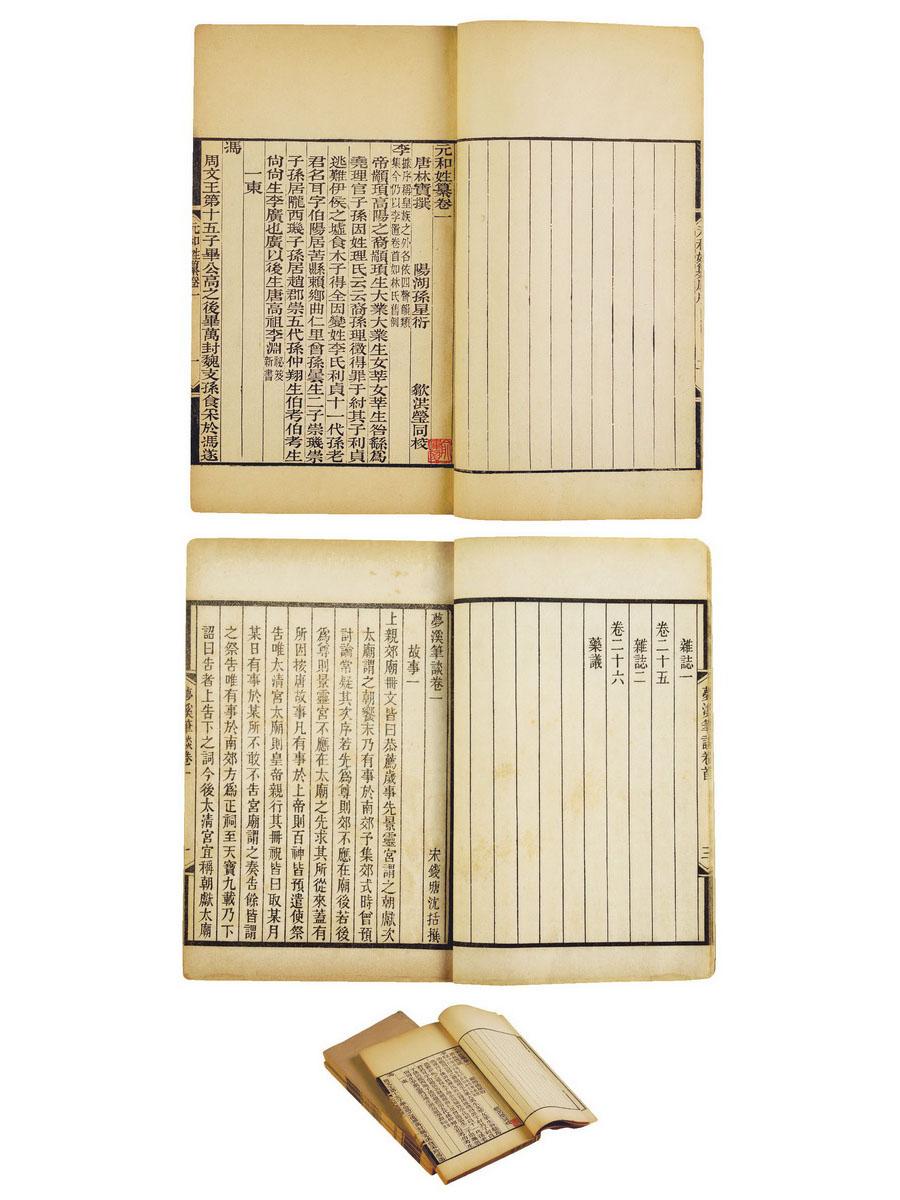 元和姓纂卷一
唐林寶撰　陽湖孫星衍　歙洪瑩同校
李
據序稱皇族之外各依四聲韻類
集今仍以李置卷首如林氏舊例
帝顓頊高陽之裔顓頊生大業大業生女莘女莘生咎繇爲
堯理官子孫因姓理氏云云裔孫理徵得罪于紂其子利貞
逃難伊侯之墟食木子得全因變姓李氏利貞十一代孫老
君名耳字伯陽居苦縣賴鄉曲仁里曾孫曇生二子崇璣崇
子孫居隴西璣子孫居趙郡崇五代孫仲翔生伯考伯考生
尙尙生李廣也廣以後生唐高祖李淵
祕笈
新書
一東
馮
周文王第十五子畢公高之後畢萬封魏支孫食采於馮遂
元和姓纂卷一
一
雜誌一
卷二十五
雜誌二
卷二十六
藥議
夢溪筆談卷首
三
夢溪筆談卷一
宋錢塘沈括撰
故事一
上親郊廟冊文皆曰恭薦歲事先景靈宮謂之朝獻次
太廟謂之朝饗末乃有事於南郊予集郊式時曾預
討論常疑其次序若先爲尊則郊不應在廟後若後
爲尊則景靈宮不應在太廟之先求其所從來蓋有
所因按唐故事凡有事於上帝則百神皆預遣使祭
告唯太清宮太廟則皇帝親行其冊祝皆曰取某月
某日有事於某所不敢不告宮廟謂之奏告餘皆謂
之祭告唯有事於南郊方爲正祠至天寶九載乃下
詔曰告者上告下之詞今後太清宮宜稱朝獻太廟
夢溪筆談卷一
一